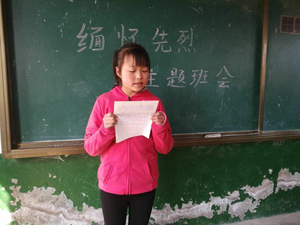 缅怀先烈
主题班会